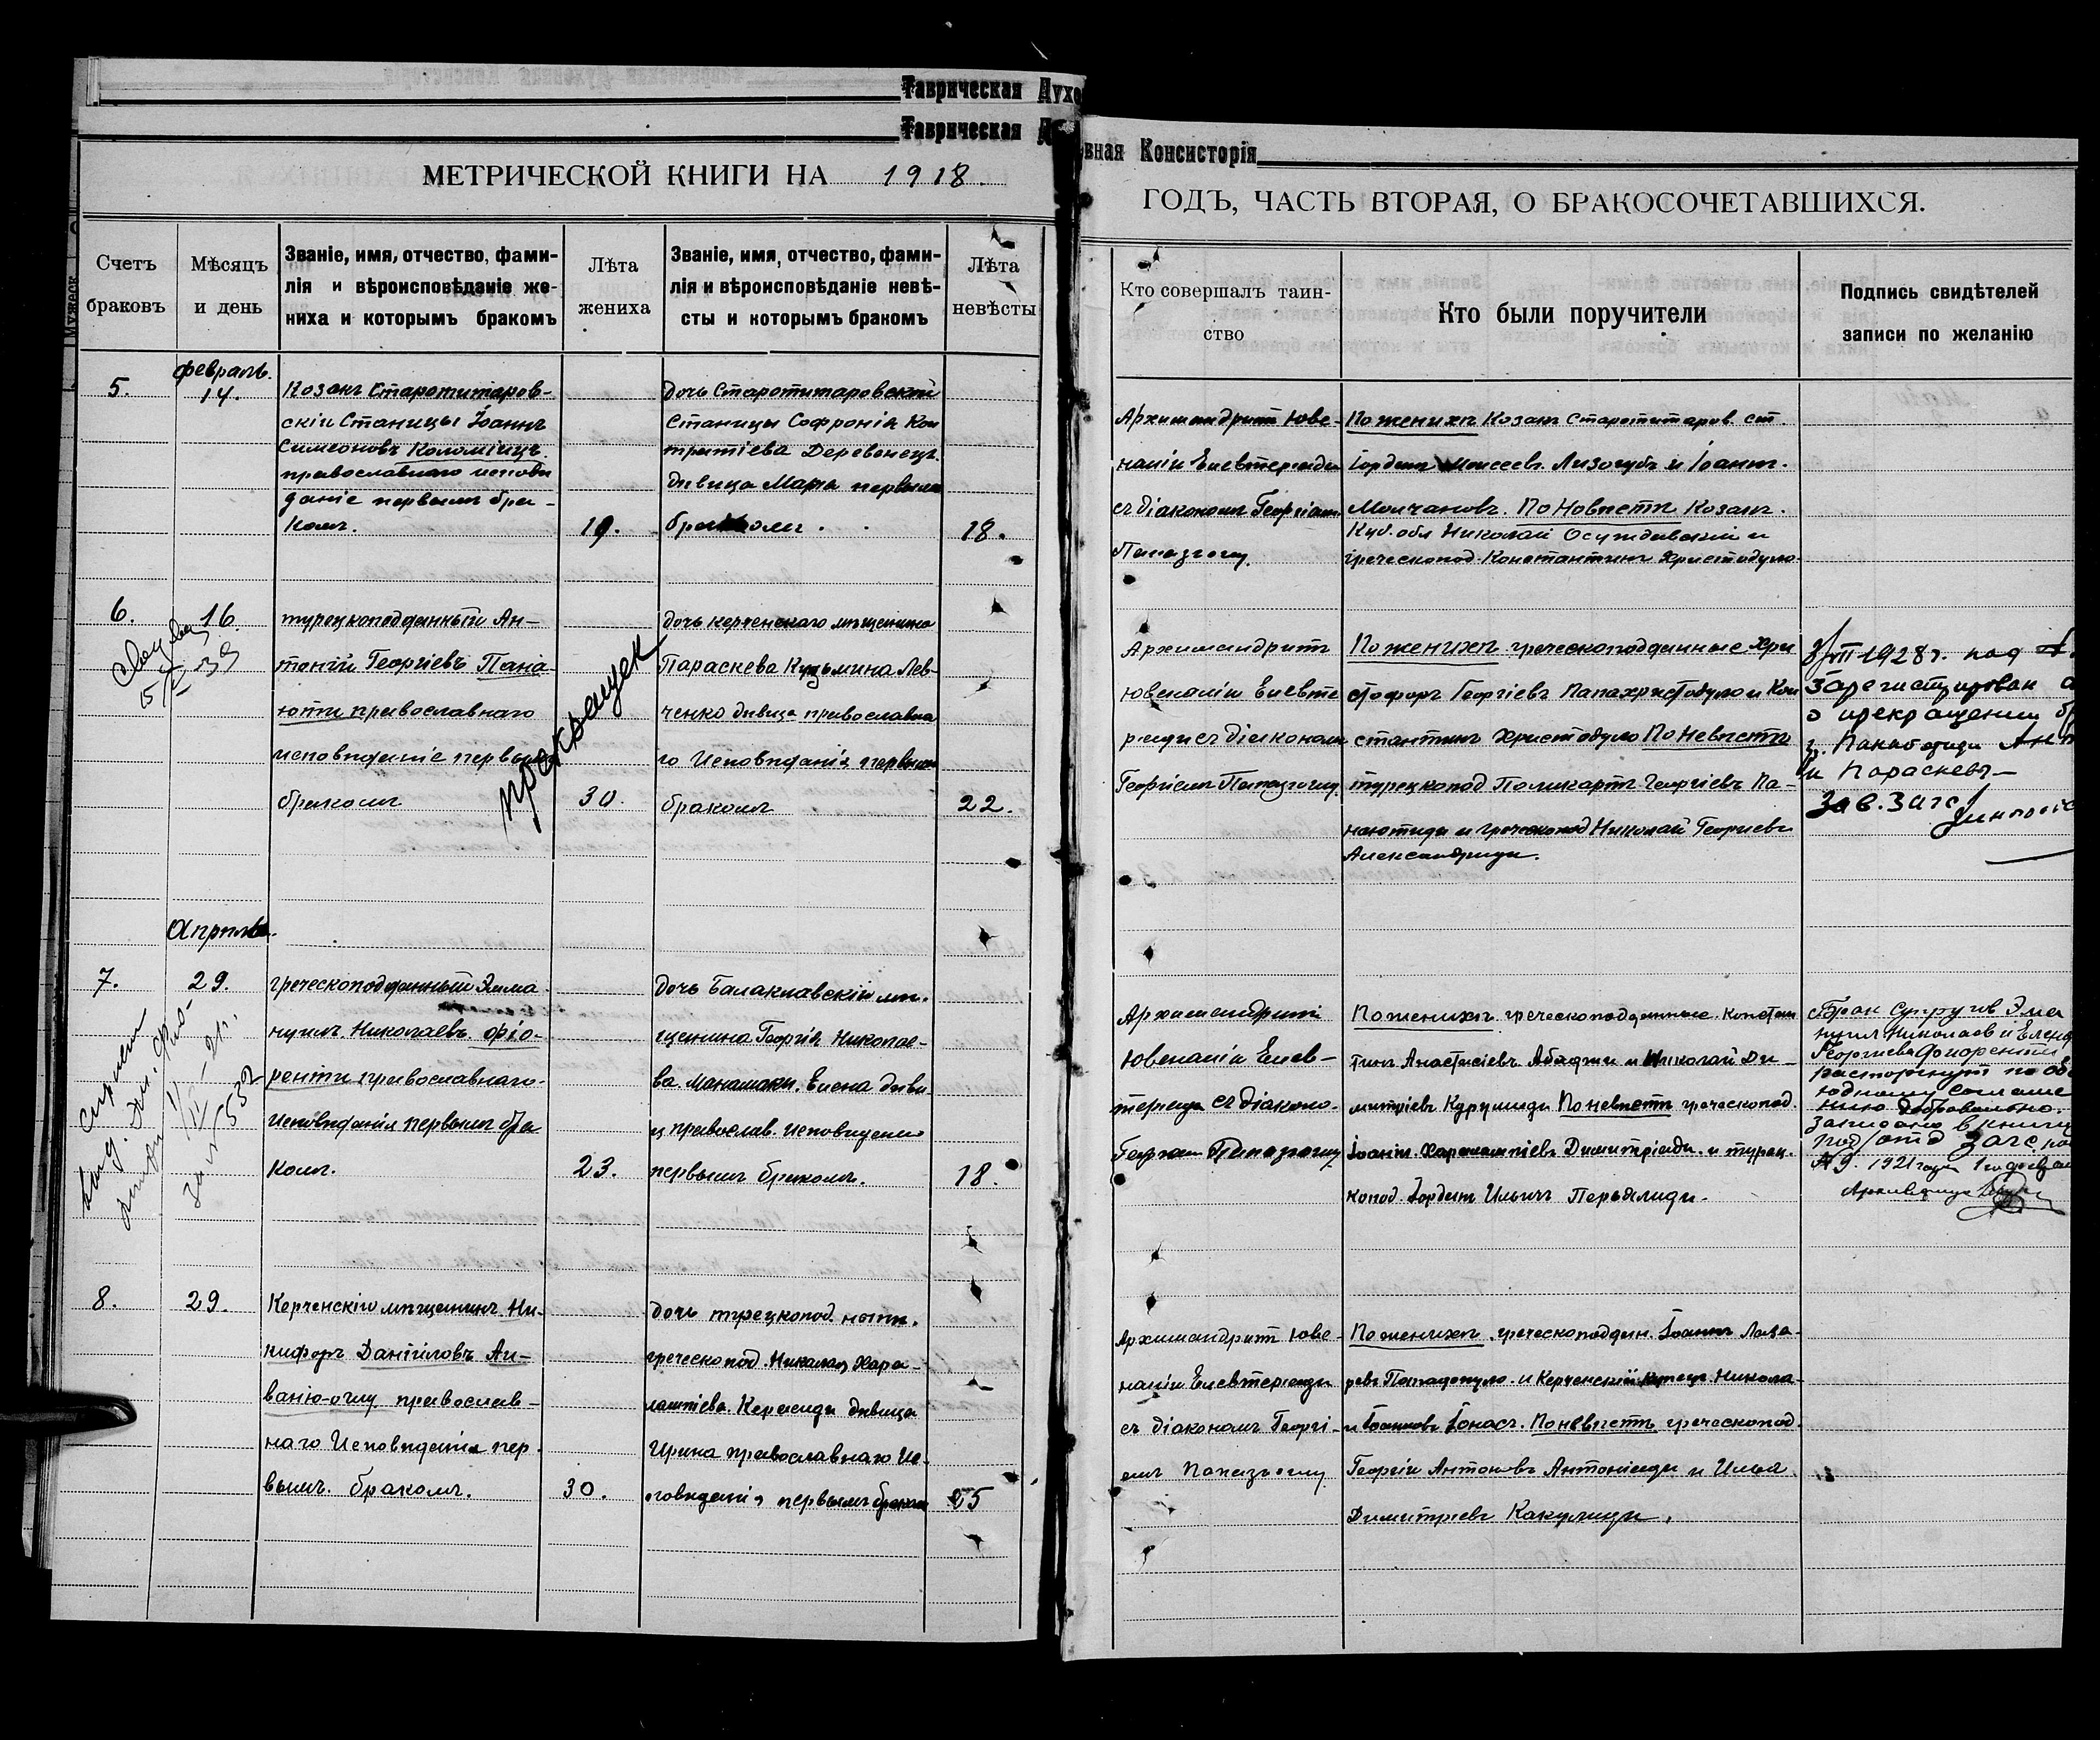 Таврическая Духо
Таврическая Д
вная Консисторія
МЕТРИЧЕСКОЙ КНИГИ НА 1918.
ГОДЪ, ЧАСТЬ ВТОРАЯ, О БРАКОСОЧЕТАВШИХСЯ.
Счетъ
браковъ
Мѣсяцъ
и день
Званіе, имя, отчество, фами-
лія и вѣроисповѣданіе же-
ниха и которымъ бракомъ
Лѣта
жениха
Званіе, имя, отчество, фами-
лія и вѣроисповѣданіе невѣ-
сты и которымъ бракомъ
Лѣта
невѣсты
Кто совершалъ таин-
ство
Кто были поручители
Подпись свидѣтелей
записи по желанію
5.
февраль.
14.
Козакъ Старотитаров-
скіи Станицы Іоаннъ
Симеоновъ Коломіицъ.
православнаго исповѣ
даніе первымъ бра-
комъ.
19.
дочь Старотитаровской
Станицы Софронія Кон
тратіева Деревенецъ.
дѣвица Марѳа первымъ
бракомъ.
18.
Архимандритъ Юве-
наліи Елевтеріади
съ діакономъ Георгіемъ
Папазоглу.
По женихѣ Козакъ Старотитаров. ст.
Іорданъ Моисеевъ. Лизогубъ и Іоаннъ.
Молчановъ. По Новѣстѣ Козакъ.
Куб. обл Николай Осуждовскій и
греческопод. Константинъ Христодуло.
6.
16.
турецкоподданный Ан-
тоній Георгіевъ Пана-
ютти православнаго
исповѣданіе первымъ
бракомъ
30.
прекращен
дочь керченскаго мѣщанина
Параскева Кузьмина Лев-
ченко дѣвица православна
го Исповѣданія первымъ
бракомъ
22.
Архимандритъ
Ювеналіи Елевте
ріади съ діакономъ
Георгіемъ Папазоглу
По женихѣ греческоподданные Хри
стофоръ Георгіевъ Папахристодуло и Кон
стантинъ Христодуло По Невѣстѣ
турецкопод Поликарпъ Георгіевъ Па-
наютиди и греческопод Николай Георгіевъ
Александриди.
VII 1928 г. под №
зарегистрирован а
о прекращении бр
и Параскевъ-
Зав. Загс
Апрѣль.
7.
29.
греческоподданный Эмма
нуилъ. Николаевъ. Фіо-
рентти православнаго.
Исповѣданія первымъ бра
комъ.
23.
дочь Балаклавскіи мѣ-
щанина Георгія Николае-
ва. Манамаки. Елена дѣви
ц православ. исповѣдание
первымъ бракомъ.
18.
Архимандритъ
Ювеналіи Елев-
теріади съ діаконо-
Георгіемъ Папазоглу
По женихѣ. греческоподданные. Констан
тинъ Анастасіевъ Абаджи и Николай Ди-
митріевъ Курумиди По невѣстѣ греческопод.
Іоаннъ. Харалампіевъ Димитріади. и турец-
копод. Іорданъ Ильичъ Пердялиди.
Брак супругов Эма
нуил Николаев и Елена
Георгиева Фиорентти
расторгнут по обо
юдному соглаше
нию добровольно.
записано в книгу
под/отд загс
№ 9. 1921 года 1го февра
8.
29.
Керченскіго мѣщанинъ. Ни-
кифоръ Даніиловъ Ай-
ваніо-оглу православ-
наго Исповѣданія пер.
вымъ. бракомъ.
30.
дочь турецкопод. нынѣ.
греческопод. Николая Хара-
лампіева. Керасиди дѣвица
Ирина православнаго Ис-
повѣданія первымъ бракомъ
25
Архимандритъ Юве-
наліи Елевтеріади
съ діакономъ Георгі-
емъ Папазоглу
По женихѣ. греческоподдан. Іоаннъ Лаза-
ревъ Пападопуло. и Керченскій купецъ Никола-
и Іоанновъ Іонасъ. По невѣстѣ греческопод.
Георгіи Антоновъ Антоніади и Илья
Димитріевъ Какулиди.